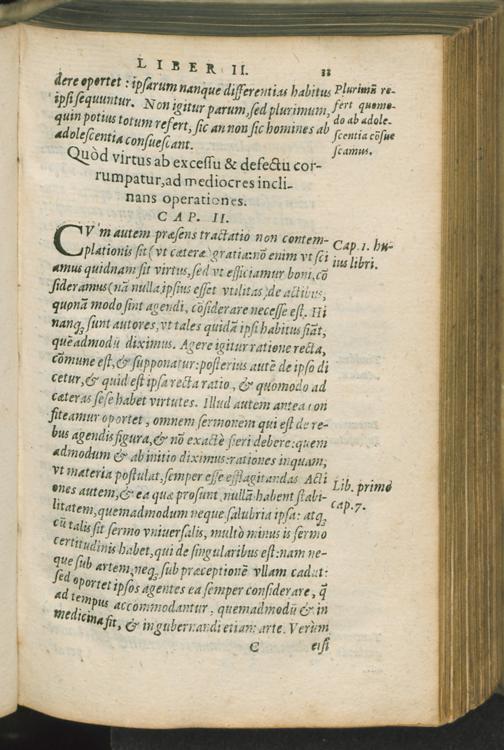 LIBER II. 33
dere oportet : ipsarum nanque differentias habitus
ipsi sequuntur. Non igitur parum, sed plurimum,
quin potius totum refert, sic an non sic homines ab
adolescentia consuescant.
Plurimũ re-
fert quomo-
do ab adole-
scentia cõsue
scamus.
Quòd virtus ab excessu & defectu cor-
rumpatur, ad mediocres incli-
nans operationes.
CAP. II.
CVm autem præsens tractatio non contem-
plationis sit (vt cæteræ) gratia: nõ enim vt sci
amus quidnam sit virtus, sed vt efficiamur boni, cõ
sideramus (nã nulla ipsius esset vtilitas) de actibus,
quonã modo sint agendi, cõsiderare necesse est. Hi
nanq; sunt autores, vt tales quidã ipsi habitus fiãt,
quẽ admodũ diximus. Agere igitur ratione recta,
cõmune est, & supponatur: posterius autẽ de ipso di
cetur, & quid est ipsa recta ratio, & quomodo ad
cæteras sese habet virtutes. Illud autem antea con
fiteamur oportet, omnem sermonẽ qui est de re-
bus agendis figura, & nõ exactè fieri debere: quem
admodum & ab initio diximus: rationes inquam,
vt materia postulat, semper esse efflagitandas Acti
ones autem, & ea quæ prosunt, nullã habent stabi-
litatem, quemadmodum neque salubria ipsa: atq;
cũ talis sit sermo vniuersalis, multò minus is sermo
certitudinis habet, qui de singularibus est: nam ne-
que sub artem, neq; sub præceptionẽ vllam cadit:
sed oportet ipsos agentes ea semper considerare, q̃
ad tempus accommodantur, quemadmodũ & in
medicina fit, & in gubernandi etiam arte. Verùm
Cap. 1. hu-
ius libri.
Lib. primo
cap. 7.
C etsi